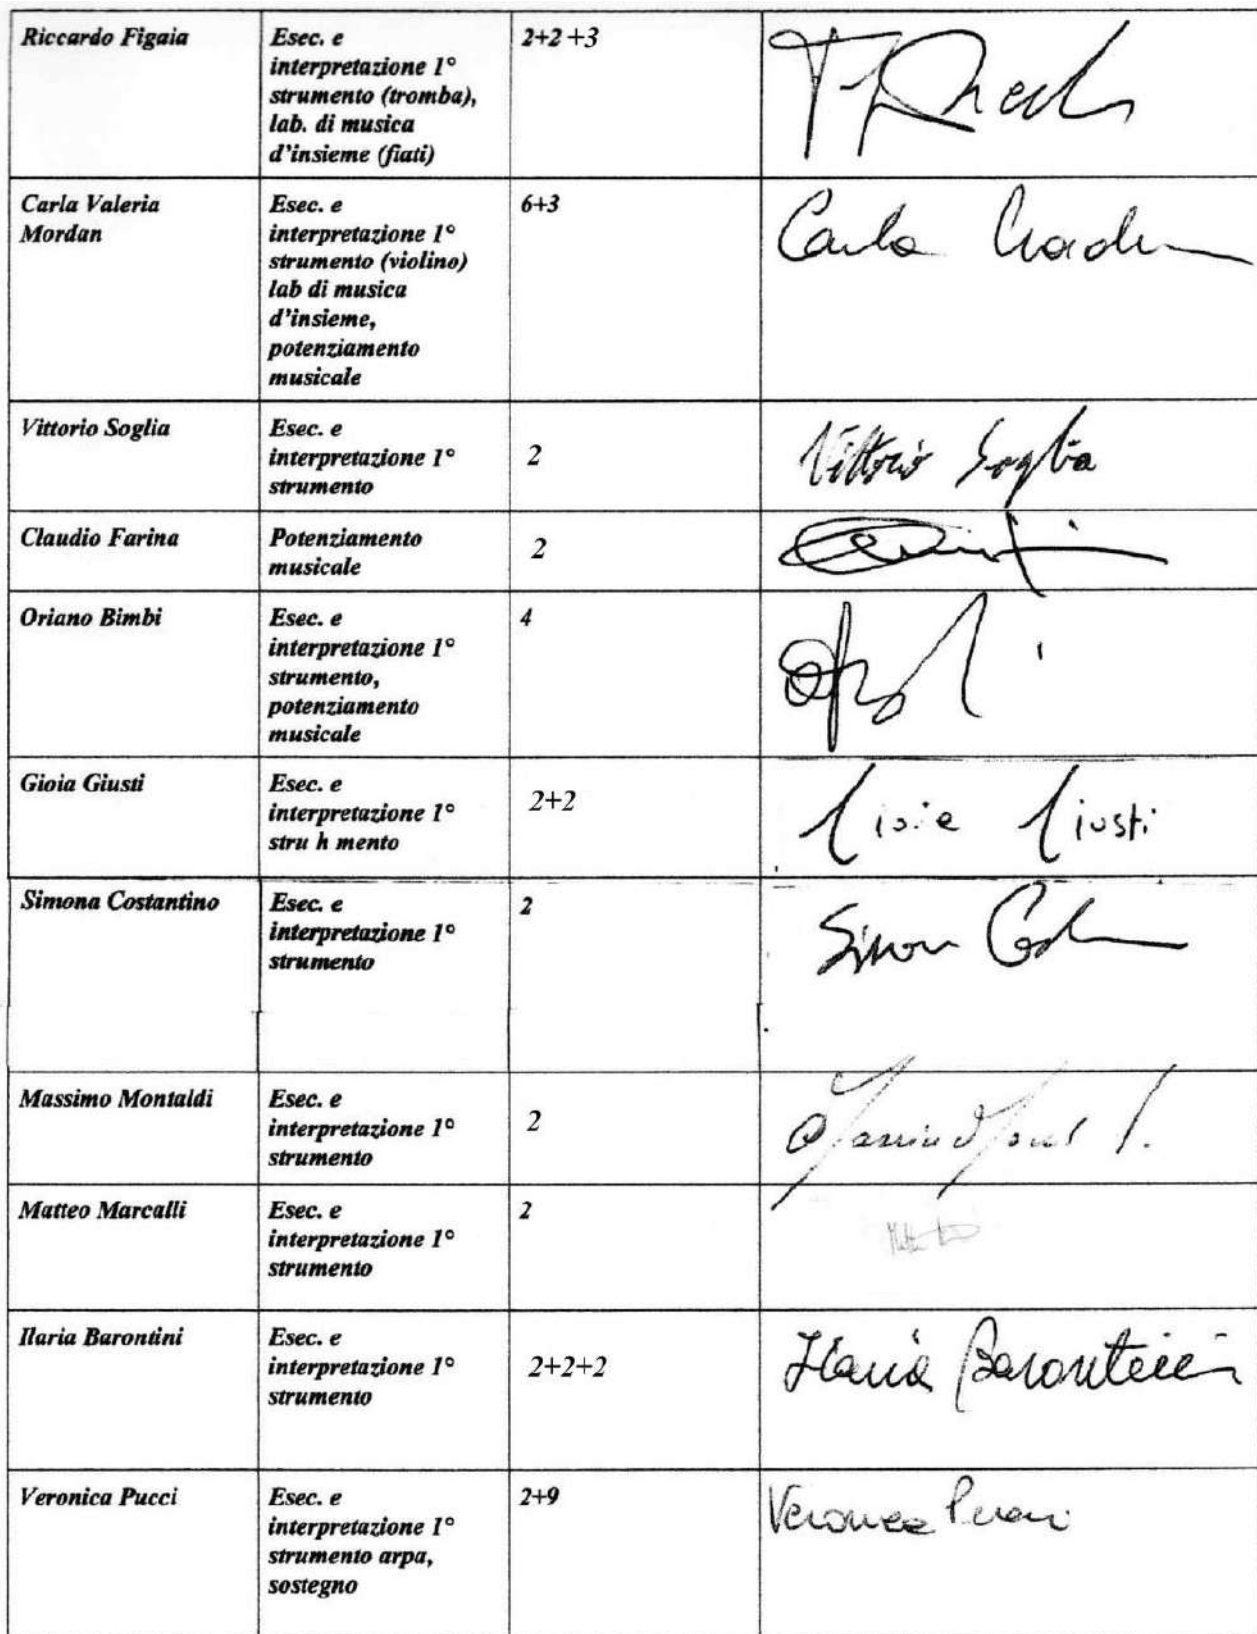 Riccardo Figaia
Esec. e
interpretazione 1°
strumento (tromba),
lab. di musica
d'insieme (fiati)
2+2 +3
Carla Valeria
Mordan
Esec. e
interpretazione 1°
strumento (violino)
lab di musica
d'insieme,
potenziamento
musicale
6+3
Carla
Vittorio Soglia
Esec. e
interpretazione 1°
strumento
2
Vittorio Soglia
Claudio Farina
Potenziamento
musicale
2
Oriano Bimbi
Esec. e
interpretazione 1°
strumento,
potenziamento
musicale
4
Gioia Giusti
Esec. e
interpretazione 1°
stru h mento
2+2
Gioia Giusti
Simona Costantino
Esec. e
interpretazione 1°
strumento
2
Massimo Montaldi
Esec. e
interpretazione 1°
strumento
2
Matteo Marcalli
Esec. e
interpretazione 1°
strumento
2
Ilaria Barontini
Esec. e
interpretazione 1°
strumento
2+2+2
Ilaria Barontini
Veronica Pucci
Esec. e
interpretazione 1°
strumento arpa,
sostegno
2+9
Veronica Pucci